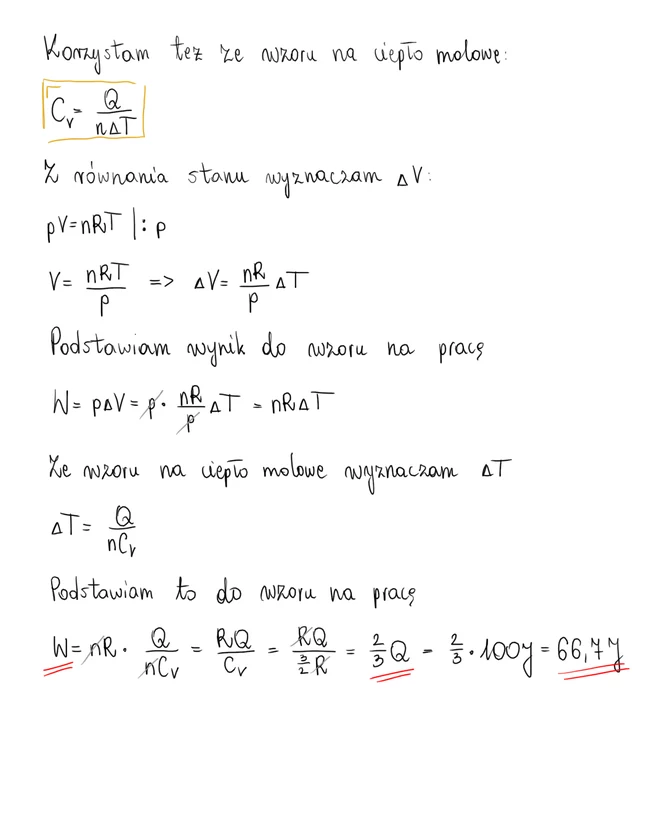 Korzystam też ze wzoru na ciepło molowe:
C_v = Q / nΔT
Z równania stanu wyznaczam ΔV:
pV=nRT |: p
V= nRT / p => ΔV= nR / p ΔT
Podstawiam wynik do wzoru na pracę
W= pΔV = p · nR / p ΔT = nRΔT
Ze wzoru na ciepło molowe wyznaczam ΔT
ΔT= Q / nC_v
Podstawiam to do wzoru na pracę
W= nR · Q / nC_v = RQ / C_v = RQ / 3/2 R = 2/3 Q = 2/3 · 100J = 66,7J